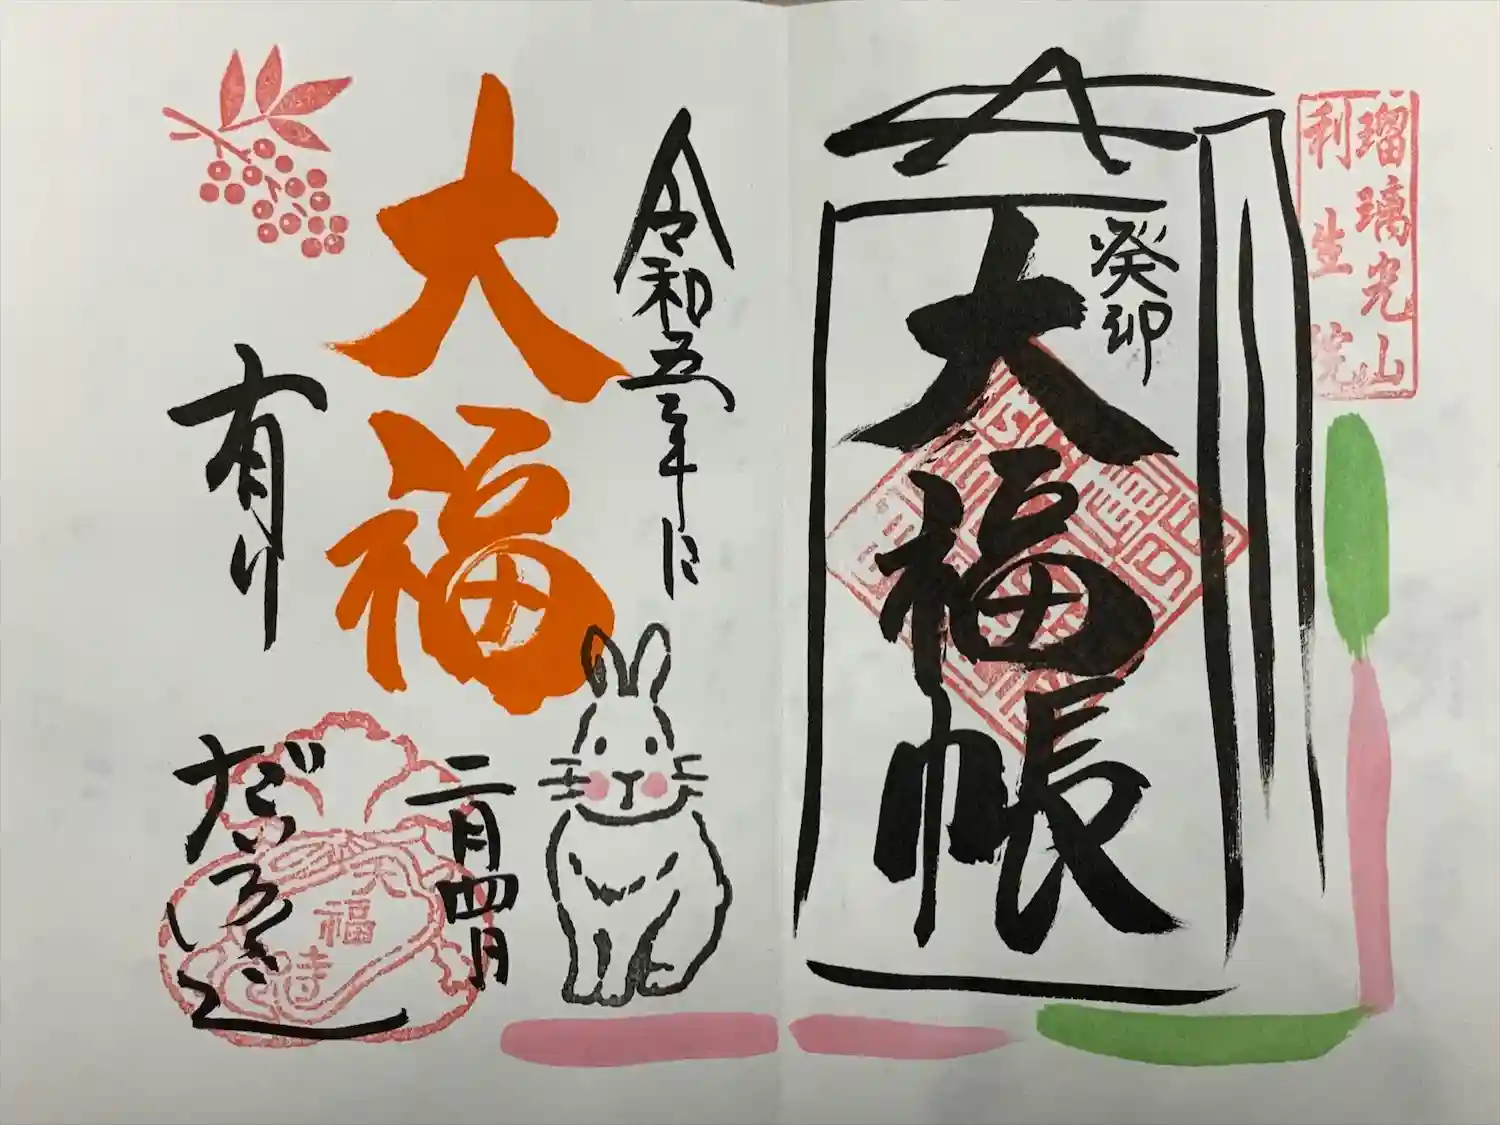 瑠璃光山
利生院
癸卯
大福帳
令和五年に
大福
有り
二月四日
大福寺